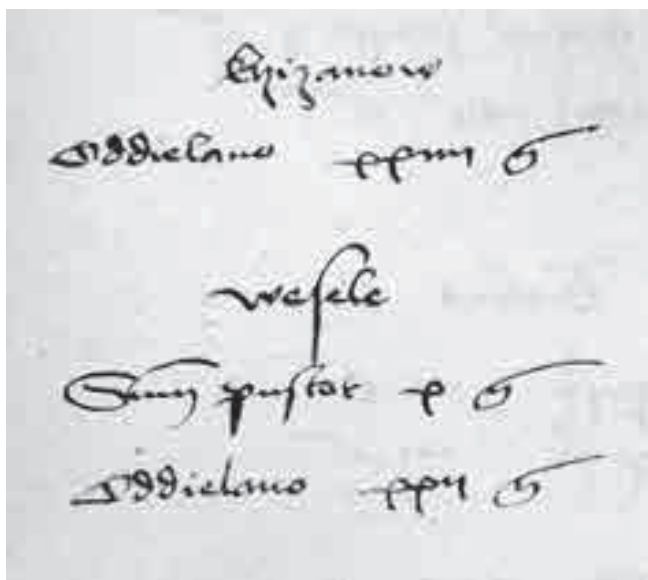 Krzizanow
Oddielano xxiiii g
Wesele
Summ pustot x g
Oddielano xxii g